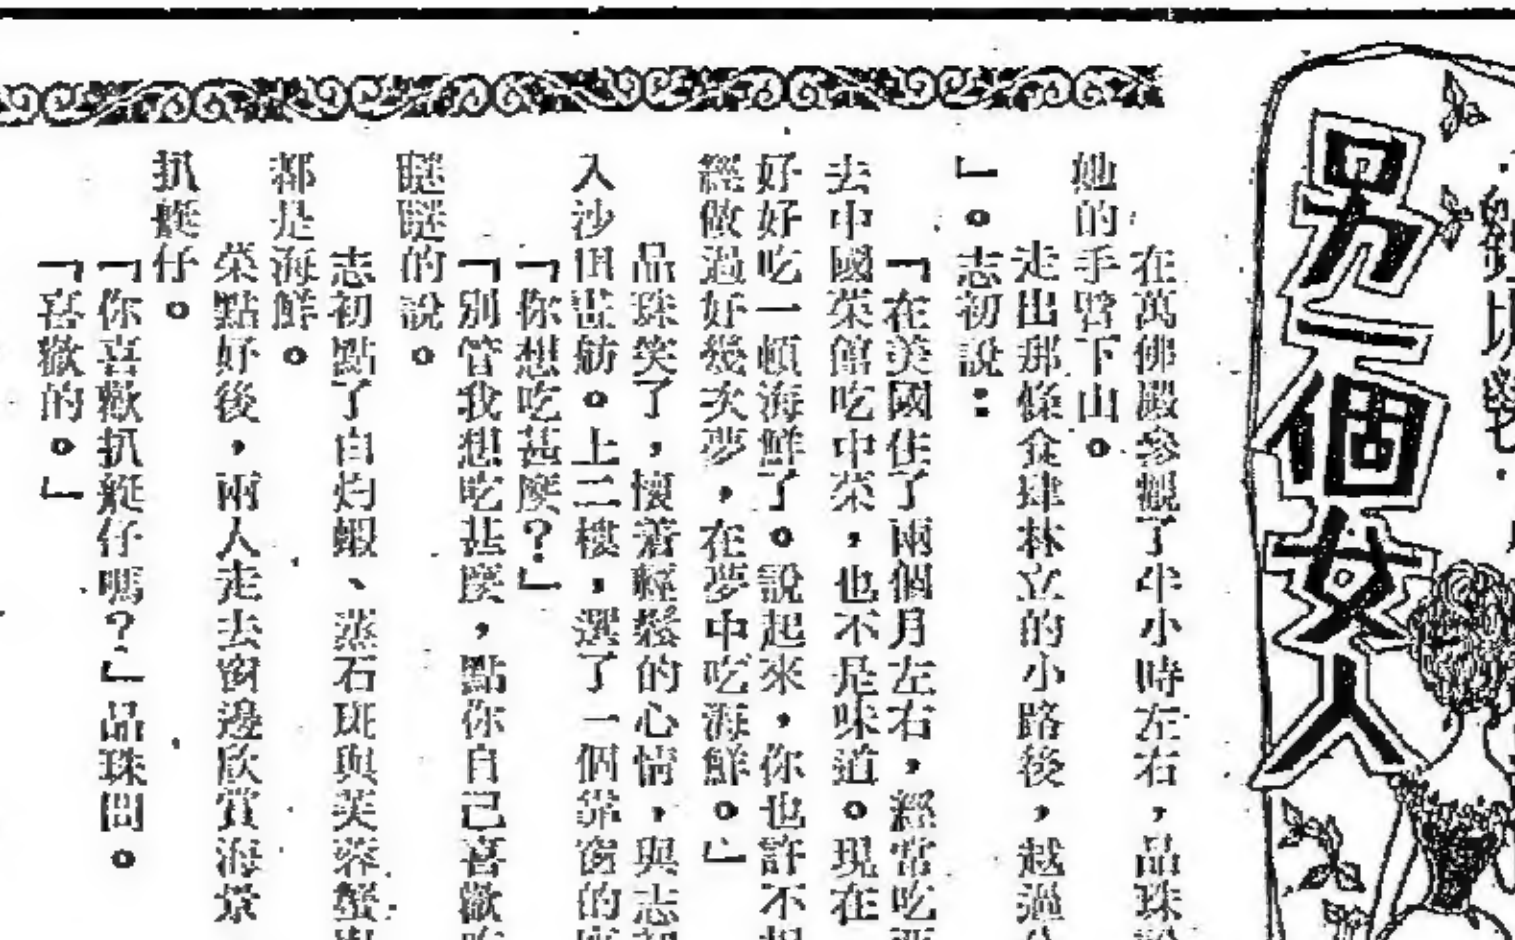 另一個女人
在萬佛殿參觀了半小時左右，品珠
她的手臂下山。
走出那條食肆林立的小路後，越過
」。志初說：
「在美國住了兩個月左右，經常吃
去中國菜館吃中菜，也不是味道。現在
好好吃一頓海鮮了。說起來，你也許不
經做過好幾次夢，在夢中吃海鮮。」
品珠笑了，懷着輕鬆的心情，與志初
入沙田畫舫。上二樓，選了一個靠窗的
「你想吃甚麼？」
「別管我想吃甚麼，點你自己喜歡
瞇瞇的說。
志初點了白灼蝦、蒸石斑與芙蓉蟹
都是海鮮。
菜點好後，兩人走去窗邊欣賞海景
扒艇仔。
「你喜歡扒艇仔嗎？」品珠問。
「喜歡的。」